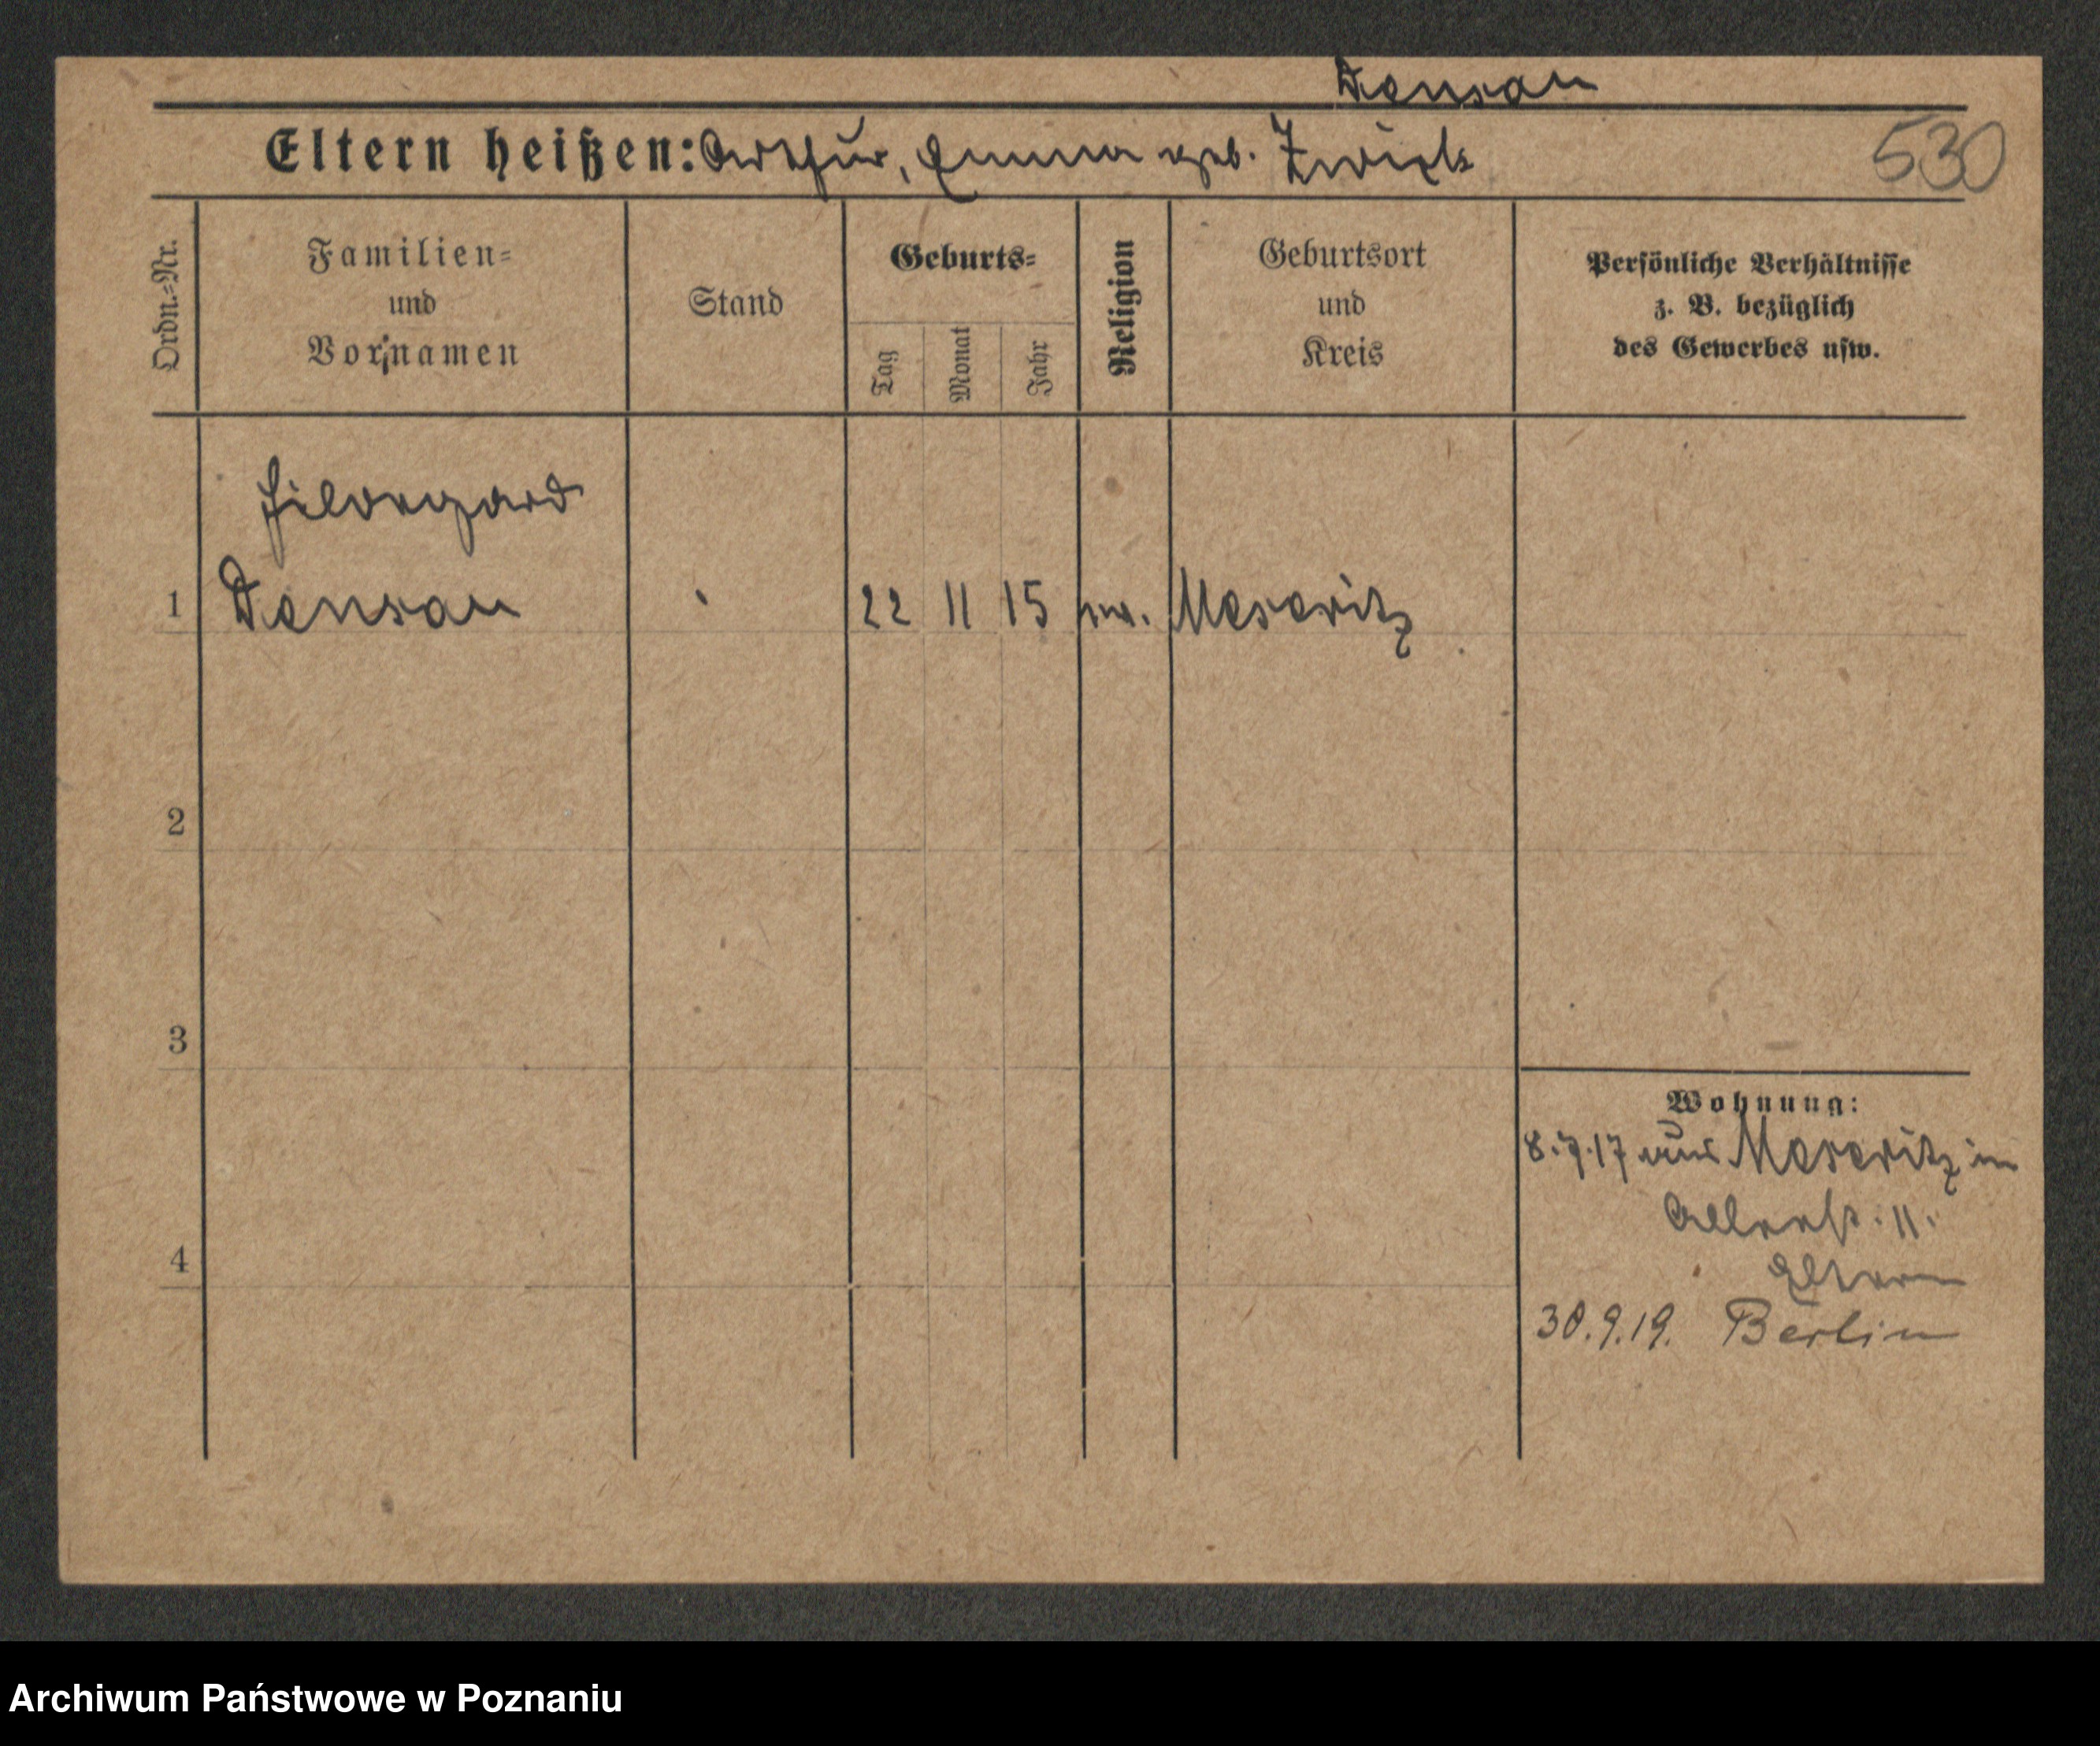 Densau
Eltern heißen: Arthur, Emma geb. Zwick
530
Ordn.-Nr.
Familien-
und
Vornamen
Stand
Geburts-
Tag
Monat
Jahr
Religion
Geburtsort
und
Kreis
Persönliche Verhältnisse
z. B. bezüglich
des Gewerbes usw.
Hildegard
1 Densau 22 11 15 ev. Meseritz
2
3
4
Wohnung:
8.7.17 aus Meseritz in
11.
Eltern
30.9.19. Berlin
Archiwum Państwowe w Poznaniu